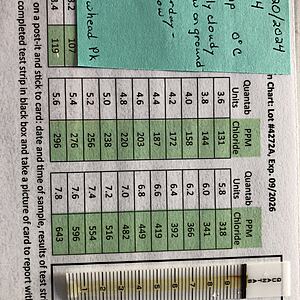 20/2024
4
p 0°C
ly cloudy
w on ground
rday -
ow
whead Pk
n Chart: Lot #4272A, Exp. 09/2026
Quantab Units PPM Chloride Quantab Units PPM Chloride
3.6 131 5.8 318
3.8 144 6.0 341
4.0 158 6.2 366
4.2 172 6.4 392
4.4 187 6.6 419
4.6 203 6.8 449
4.8 220 7.0 482
5.0 238 7.2 516
5.2 256 7.4 554
3.2 107 5.4 276 7.6 596
3.4 119 5.6 296 7.8 643
on a post-it and stick to card: date and time of sample, results of test str
completed test strip in black box and take a picture of card to report with